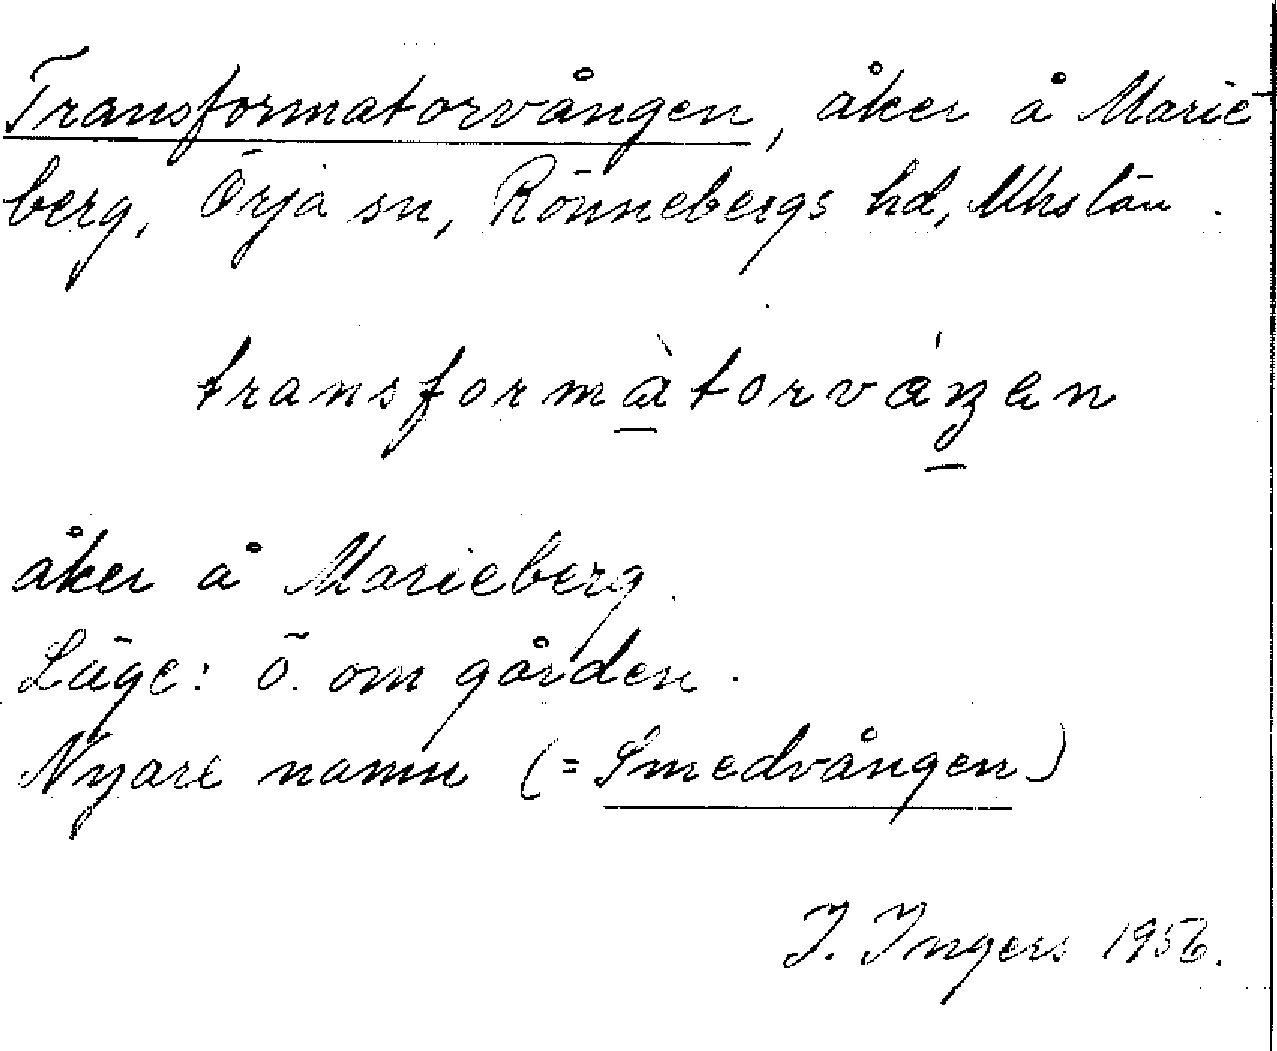 Transformatorvången, åker å Marie-
berg, Örja sn, Rönnebergs hd, Mhs län.
transformàtorváŋen
åker å Marieberg.
Läge: ö. om gården.
Nyare namn (= Smedvången)
I. Ingers 1956.